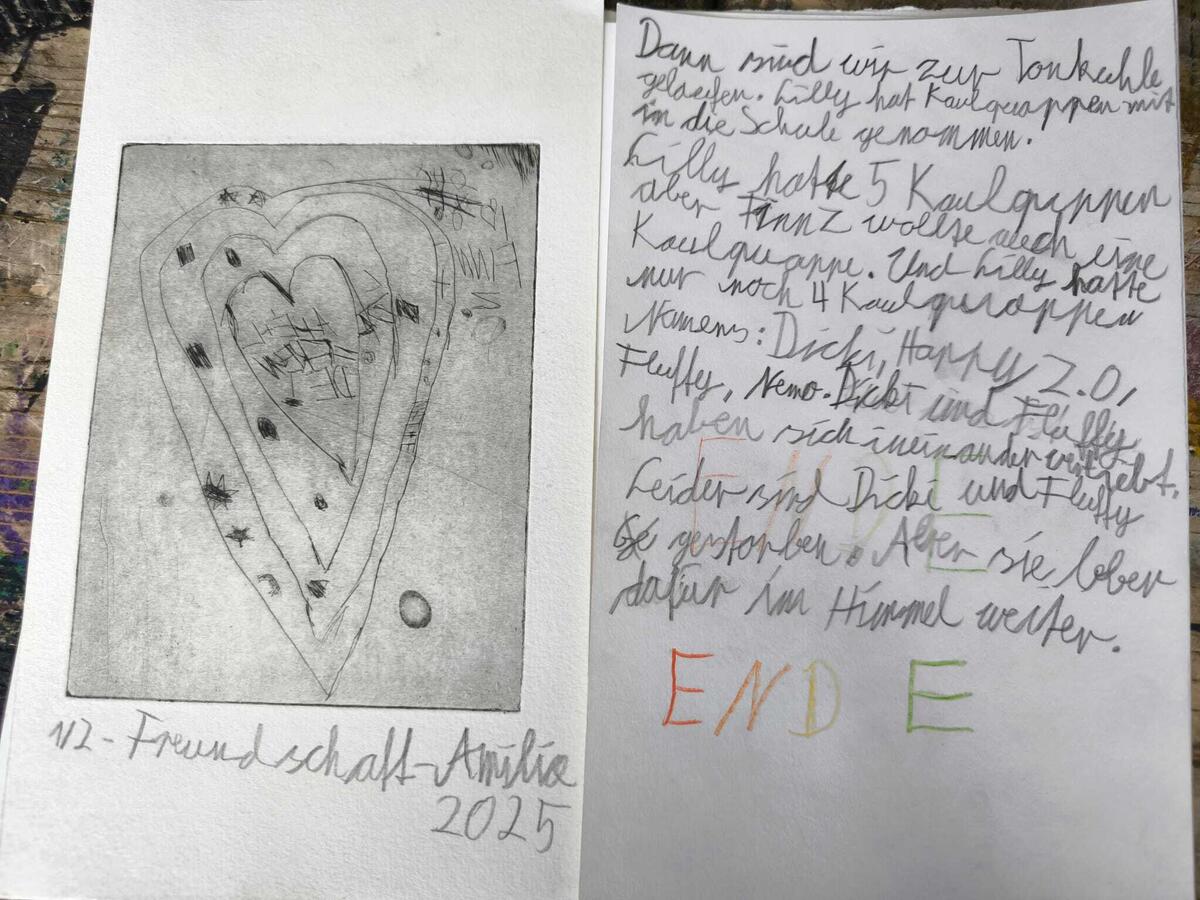 1/2 - Freundschaft - Amilia
2025
Dann sind wir zur Tonkuhle
gelaufen. Lilly hat Kaulquappen mit
in die Schule genommen.
Lilly hatte 5 Kaulquppen
aber Finn Z wollte auch eine
Kaulquappe. Und Lilly hatte
nur noch 4 Kaulquappen
Namens: Dicki, Happy 2.0,
Fluffy, Nemo. Dicki und Fluffy
haben sich ineinander verliebt.
Leider sind Dicki und Fluffy
gestorben. Aber sie leber
dafür im Himmel weiter.
ENDE